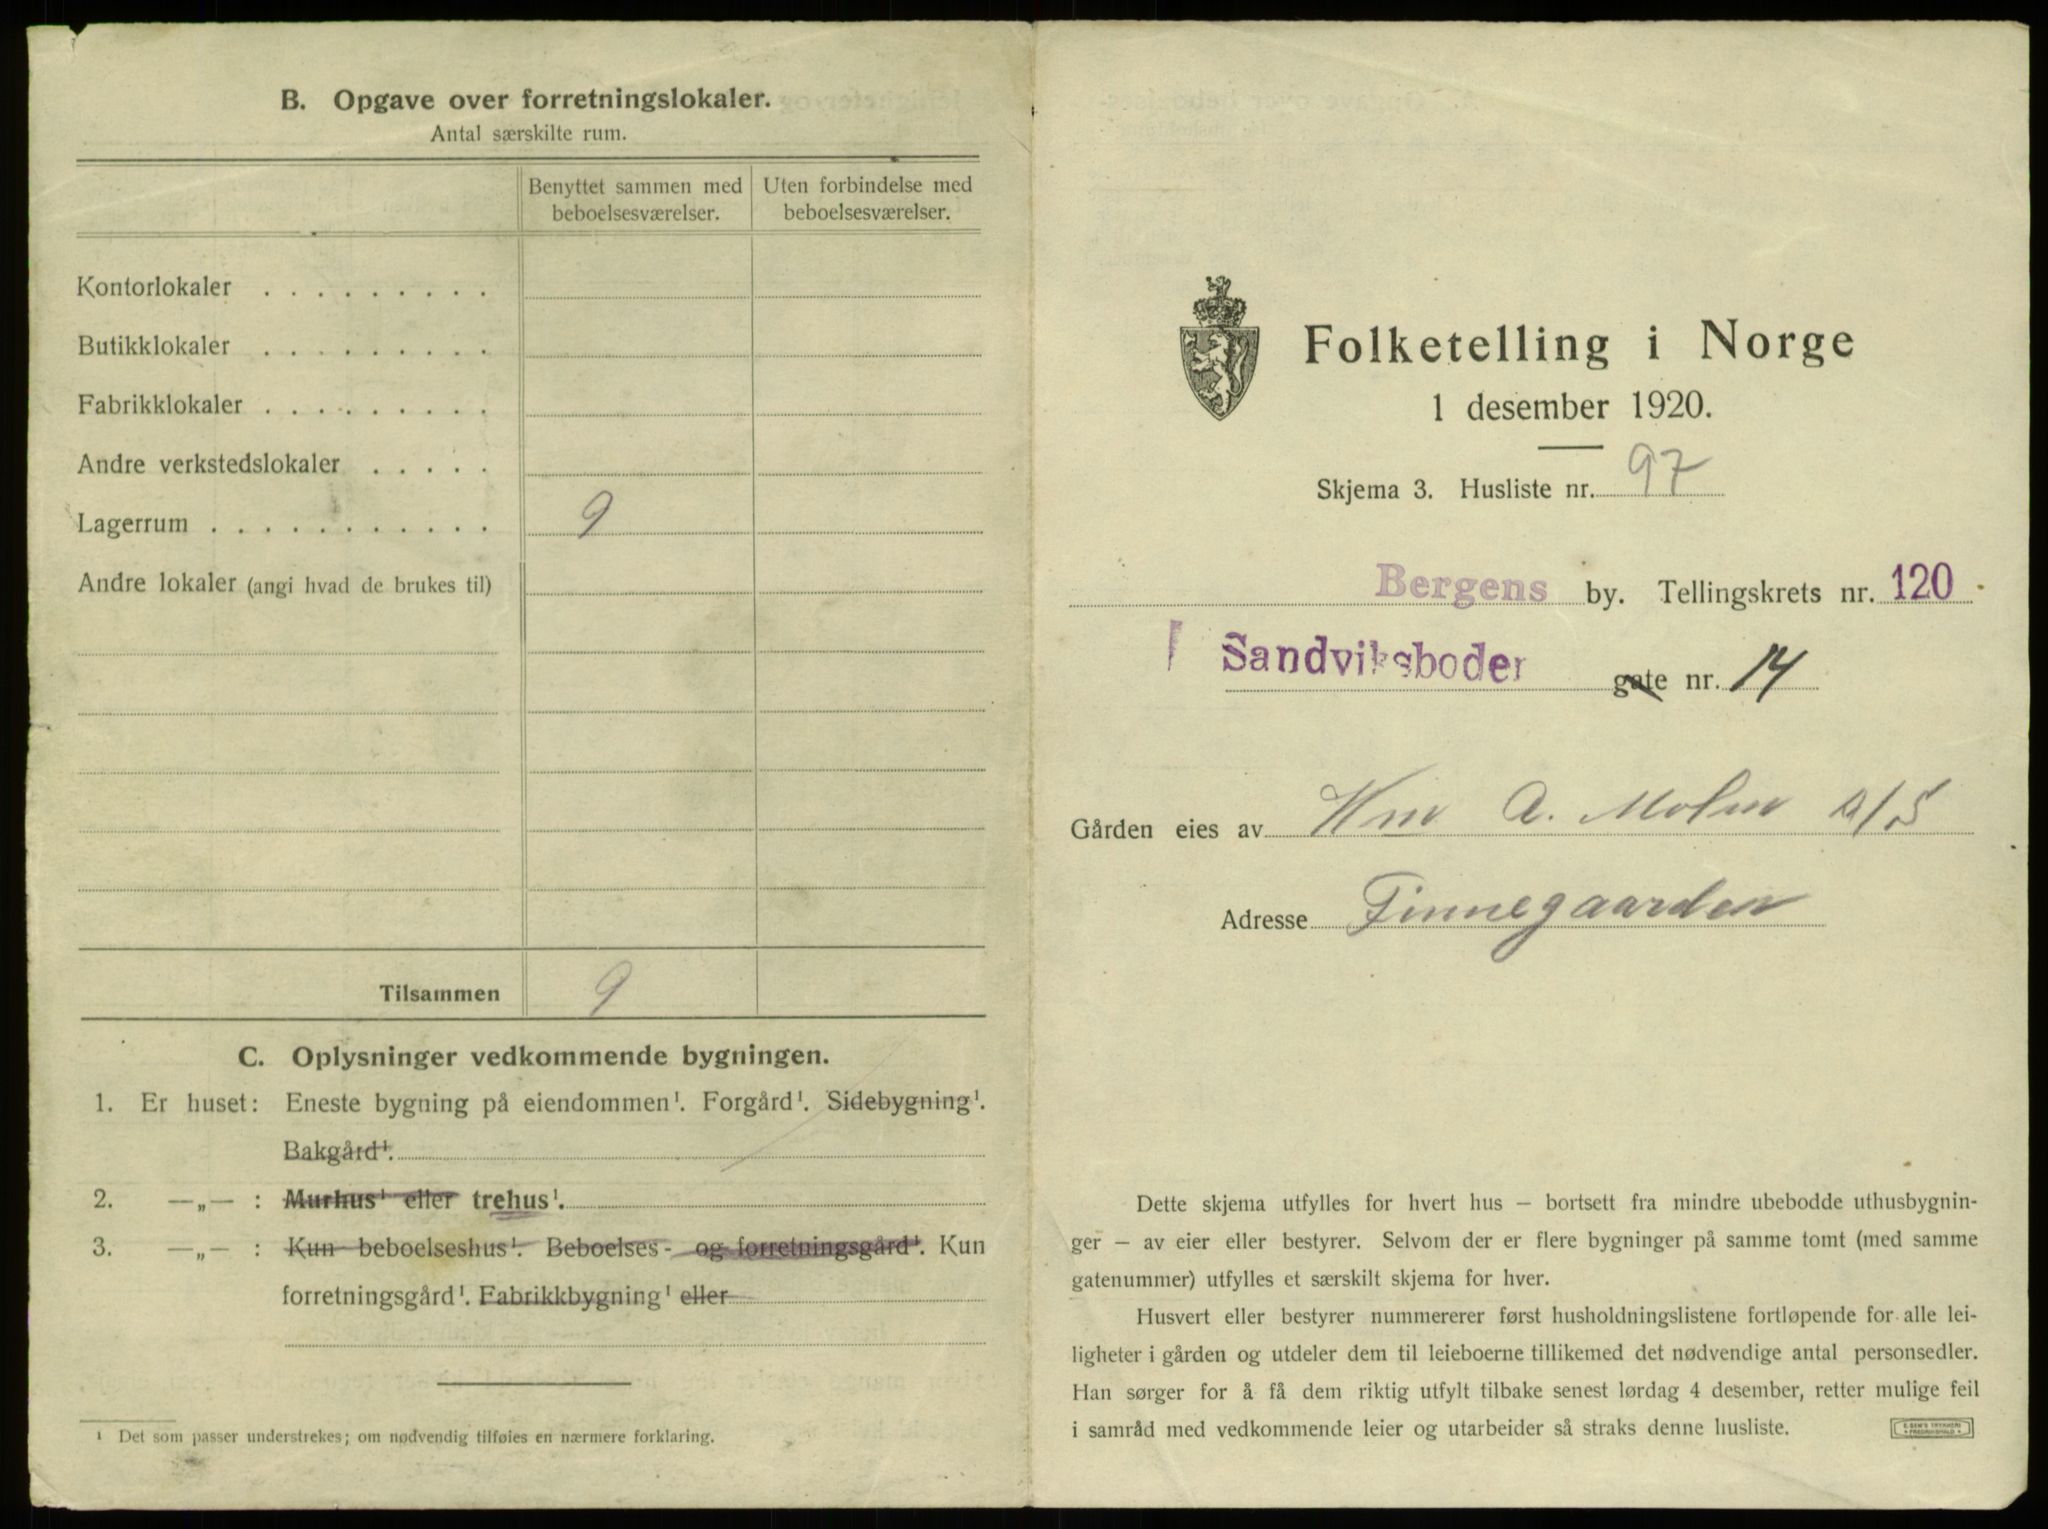 B. Opgave over forretningslokaler.
Antal særskilte rum.
Benyttet sammen med beboelsesværelser.
Uten forbindelse med beboelsesværelser.
Kontorlokaler . . . . . . . . .
Butikklokaler . . . . . . . . .
Fabrikklokaler . . . . . . . . .
Andre verkstedslokaler . . . . .
Lagerrum . . . . . . . . . . . 9
Andre lokaler (angi hvad de brukes til)
Tilsammen 9
C. Oplysninger vedkommende bygningen.
1. Er huset: Eneste bygning på eiendommen¹. Forgård¹. Sidebygning¹.
Bakgård¹.
2. —„— : Murhus¹ eller trehus¹.
3. —„— : Kun beboelseshus¹. Beboelses- og forretningsgård¹. Kun
forretningsgård¹. Fabrikkbygning¹ eller
¹ Det som passer understrekes; om nødvendig tilføies en nærmere forklaring.
Folketelling i Norge
1 desember 1920.
Skjema 3. Husliste nr. 97
Bergens by. Tellingskrets nr. 120
Sandviksboder gate nr. 14
Gården eies av A. A/S
Adresse Finnegaarden
Dette skjema utfylles for hvert hus – bortsett fra mindre ubebodde uthusbygnin-
ger – av eier eller bestyrer. Selvom der er flere bygninger på samme tomt (med samme
gatenummer) utfylles et særskilt skjema for hver.
Husvert eller bestyrer nummererer først husholdningslistene fortløpende for alle lei-
ligheter i gården og utdeler dem til leieboerne tillikemed det nødvendige antal personsedler.
Han sørger for å få dem riktig utfylt tilbake senest lørdag 4 desember, retter mulige feil
i samråd med vedkommende leier og utarbeider så straks denne husliste.